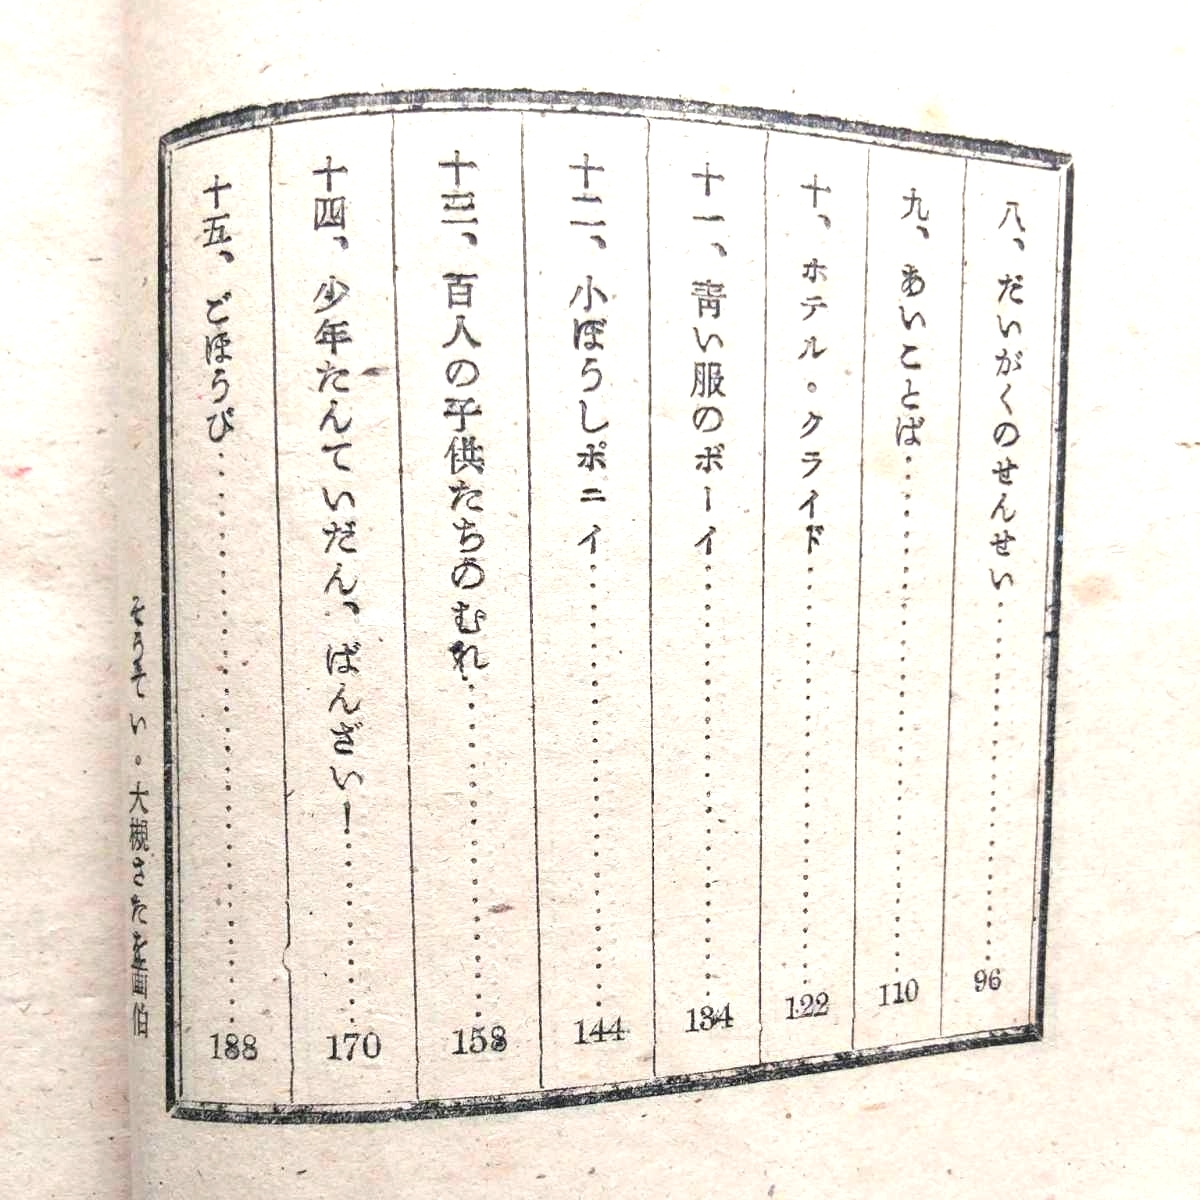 八、だいがくのせんせい 96
九、あいことば 110
十、ホテル・クライド 122
十一、青い服のボーイ 134
十二、小ぼうしポニイ 144
十三、百人の子供たちのむれ 158
十四、少年たんていだん、ばんざい! 170
十五、ごほうび 188
そうてい・大槻さだを画伯